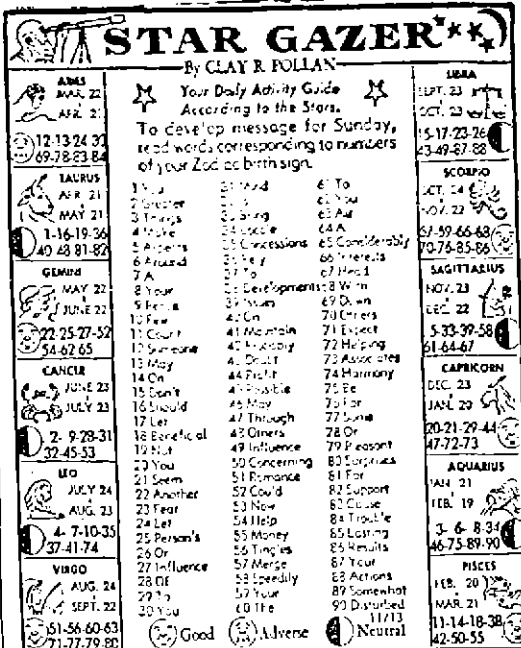 STAR GAZER
By CLAY R. POLLAN
Your Daily Activity Guide
According to the Stars.
To develop message for Sunday,
read words corresponding to numbers
of your Zodiac birth sign.
ARIES
MAR. 22
APR. 21
12-13-24-32
69-78-83-84
TAURUS
APR. 21
MAY 21
1-16-19-36
40-48-81-82
GEMINI
MAY 22
JUNE 22
22-25-27-52
54-62-65
CANCER
JUNE 23
JULY 23
2- 9-28-31
32-45-53
LEO
JULY 24
AUG. 23
4- 7-10-35
37-41-74
VIRGO
AUG. 24
SEPT. 22
51-56-60-63
71-77-79-80
1 You
2 Greater
3 Things
4 Make
6 Around
7 A
8 Your
10 Few
11 Count
12 Someone
13 May
14 On
15 Don't
16 Should
17 Let
18 Beneficial
19 Not
20 You
21 Seem
22 Another
23 Fear
24 Let
25 Person's
26 Or
27 Influence
28 Of
29 To
30 You
33 Bring
35 Concessions
36 Rely
37 To
38 Developments
40 On
41 Maintain
43 Doubt
44 Profit
45 Possible
46 May
47 Through
48 Others
49 Influence
50 Concerning
51 Romance
52 Could
53 Now
54 Help
55 Money
56 Tingles
57 Merge
58 Speedily
59 Your
60 The
61 To
62 You
63 Air
64 A
65 Considerably
66 Interests
67 Head
68 With
69 Down
70 Others
71 Expect
72 Helping
73 Associates
74 Harmony
75 Be
76 For
77 Some
78 Or
79 Pleasant
80 Surprises
81 For
82 Support
83 Cause
84 Trouble
85 Lasting
86 Results
87 Your
88 Actions
89 Somewhat
90 Disturbed
11/13
Good
Adverse
Neutral
LIBRA
SEPT. 23
OCT. 23
15-17-23-26
43-49-87-88
SCORPIO
OCT. 24
NOV. 22
57-59-66-68
70-76-85-86
SAGITTARIUS
NOV. 23
DEC. 22
5-33-39-58
61-64-67
CAPRICORN
DEC. 23
JAN. 20
20-21-29-44
47-72-73
AQUARIUS
JAN. 21
FEB. 19
3- 6- 8-34
46-75-89-90
PISCES
FEB. 20
MAR. 21
11-14-18-38
42-50-55